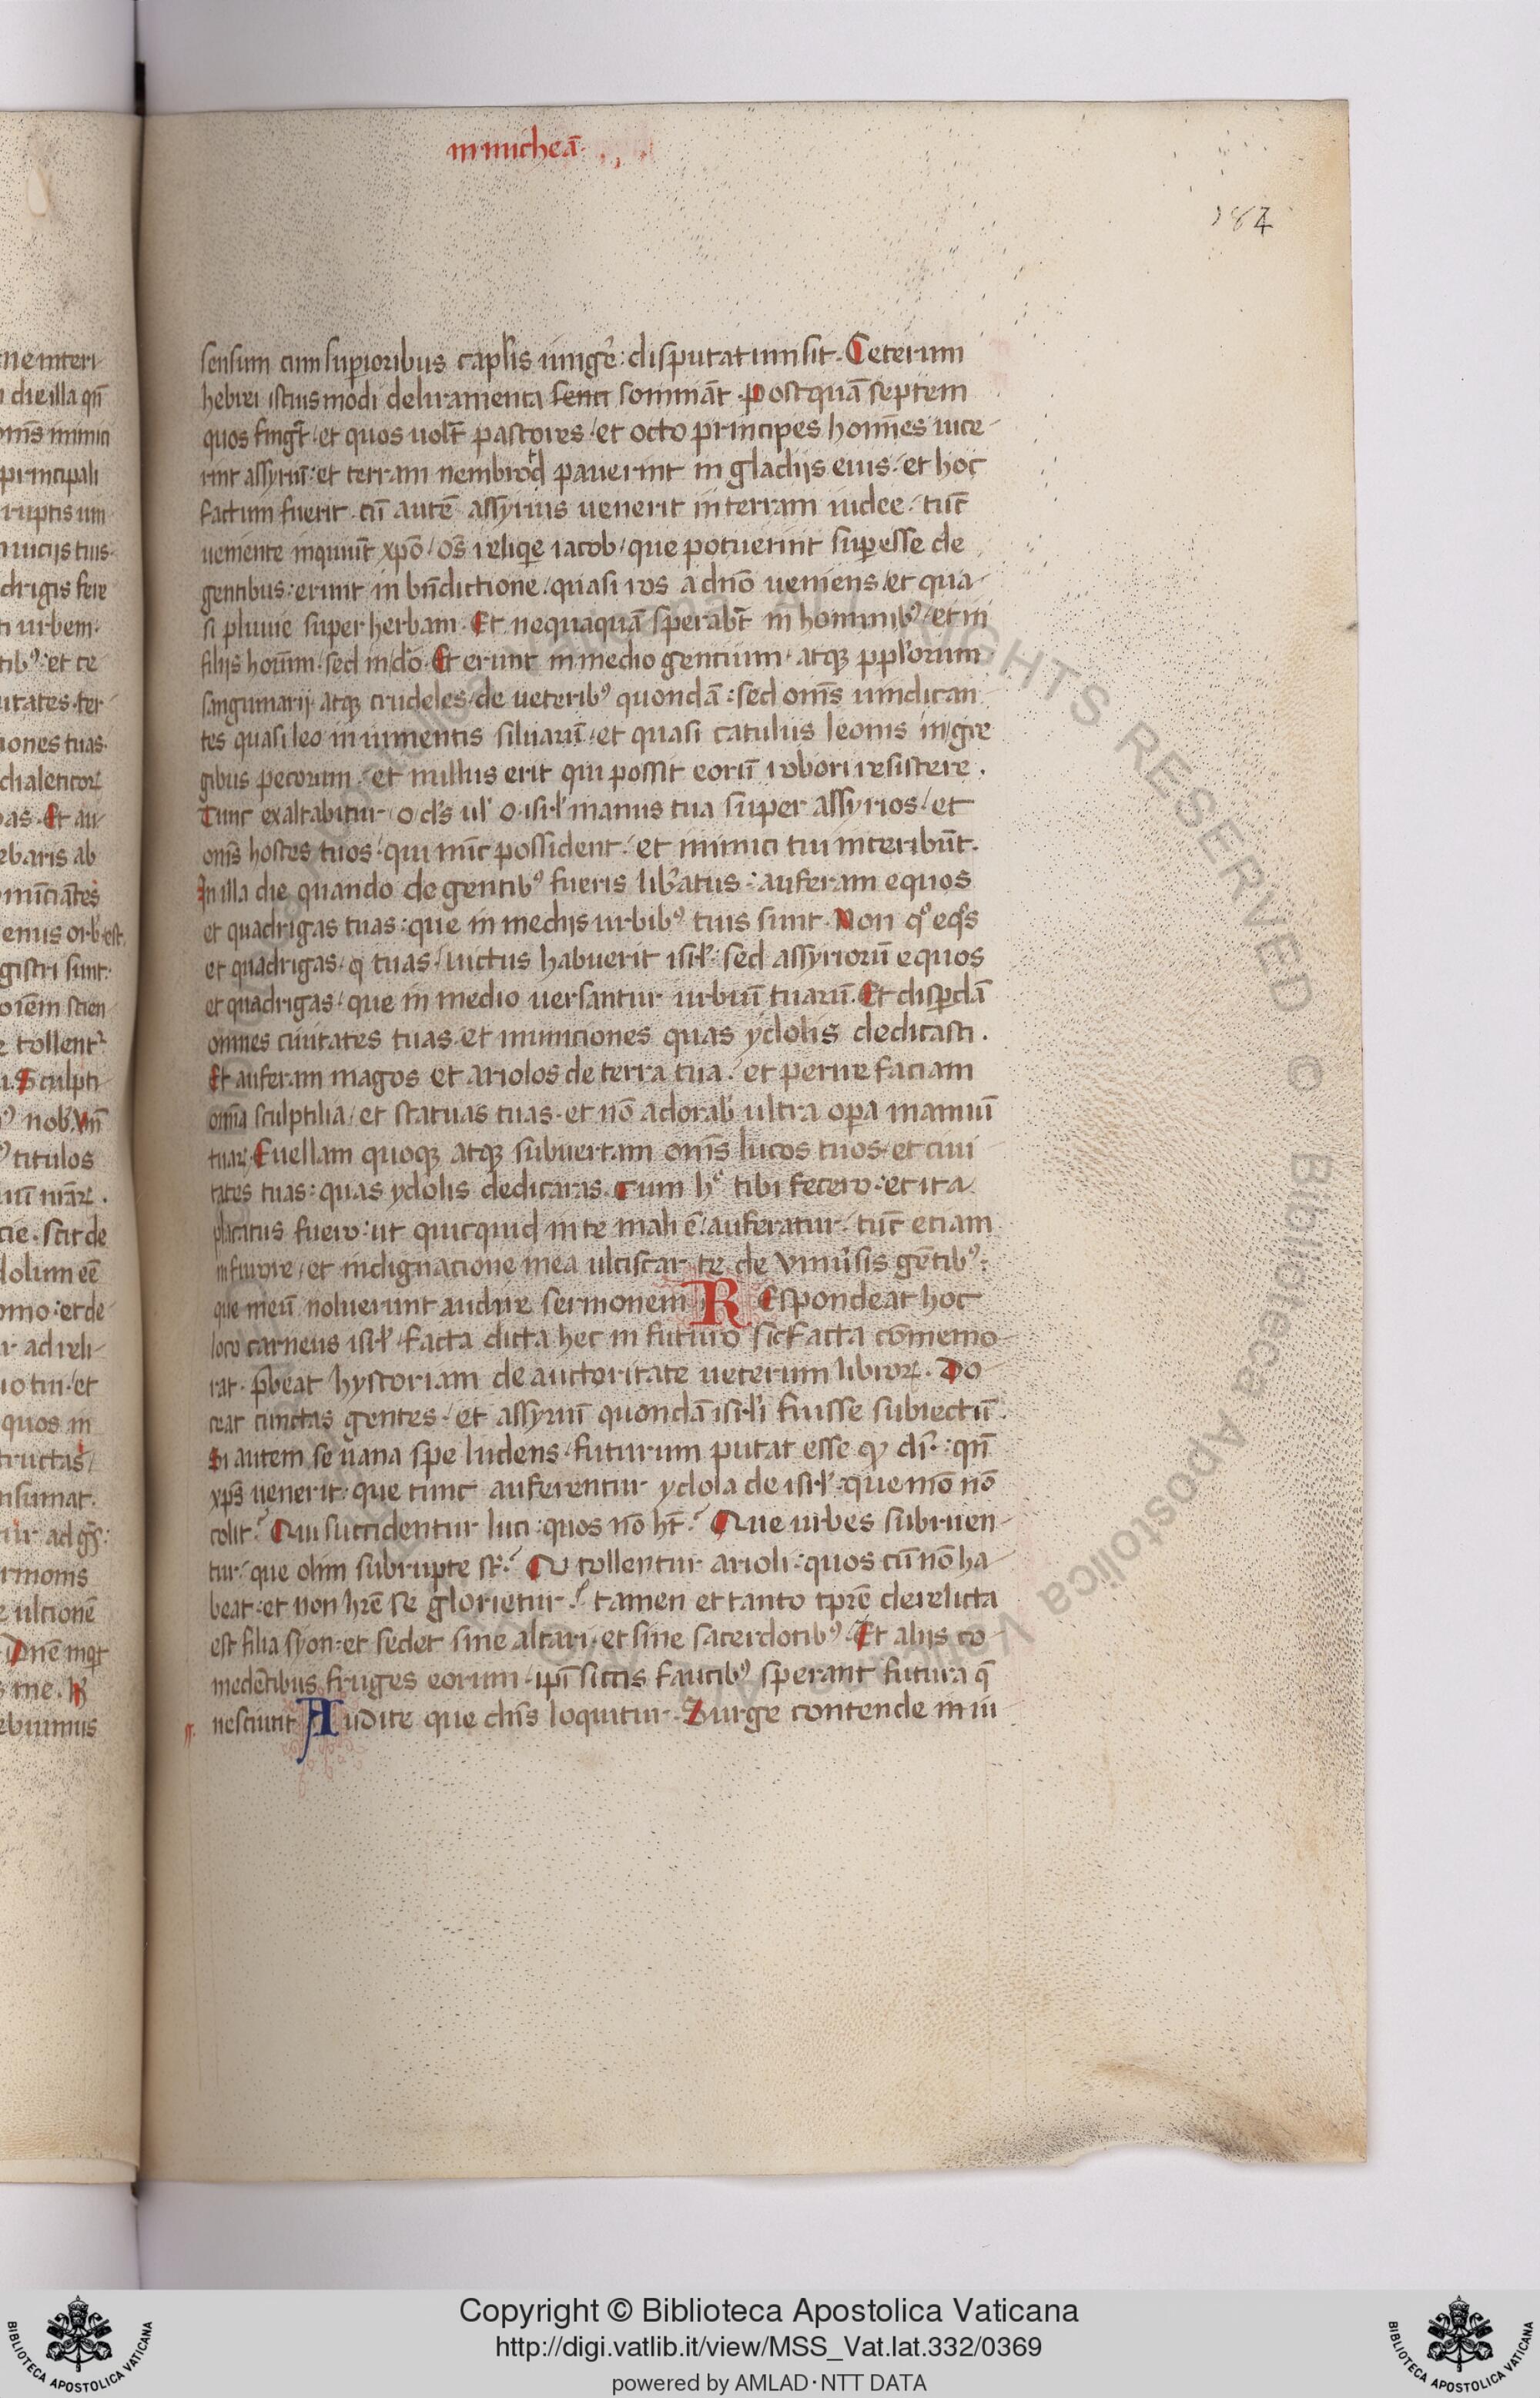 in micheā
184
sensum cum sup̄ioribus cap̄lis iungē᷑: disputatum sit. Ceterum
hebrei istius modi deliramenta senti somniāt. Postquā septem
quos fingt̄ et quos uolt̄ pastores et octo principes homīes uice
rint assyriū: et terram nembrod pauerint in gladijs eius et hoc
factum fuerit. cū autē assyrius uenerit in terram iudee. tūc
ueniente inquiūt xp̄o os̄ reliq̄e iacob que potuerint sup̄esse de
gentibus: erunt in bn̄dictione quasi ros a dn̄o ueniens et qua
si pluuie super herbam. Et nequaquā sperabt̄ in hominibꝰ et in
filijs hoīum. sed in dō. Et erunt in medio gentium. atqꝫ pp̄lorum
sanguinarij. atqꝫ crudeles de ueteribꝰ quondā: sed omīs uindican
tes quasi leo in iumentis siluarū et quasi catulus leonis in gre
gibus pecorum. et nullus erit qui possit eorū robori resistere.
Tunc exaltabitur o ds̄ ul̄ o isrł manus tua super assyrios et
oms̄ hostes tuos qui nūc possident. et inimici tui interibūt.
In illa die quando de gentibꝰ fueris libatus: auferam equos
et quadrigas tuas: que in medijs urbibꝰ tuis sunt. Non qͦ eqͦs
et quadrigas q̄ tuas uictus habuerit isrł: sed assyriorū equos
et quadrigas que in medio uersantur urbiū tuarū. Et disp̄dā
omnes ciuitates tuas et municiones quas ydolis dedicasti.
Et auferam magos et ariolos de terra tua. et perire faciam
omīa sculptilia et statuas tuas et nō adorab̄ ultra op̄a manuū
tuaꝝ. Euellam quoqꝫ atqꝫ subuertam omīs lucos tuos et ciui
tates tuas: quas ydolis dedicaras. Cum hͨ tibi fecero: et ita
placatus fuero: ut quicquid in te mali ē auferatur. tūc etiam
in furore et indignacione mea ulciscar te de uniūsis gētibꝰ:
que meū noluerunt audire sermonem. Respondeat hoc
loco carneus isrł. facta dicta hec in futuro sic facta cōmemo
rat. p̄beat hystoriam de auctoritate ueterum libroꝝ. Do
ceat cunctas gentes et assyriū quondā isrł'i fuisse subiectū.
Si autem se uana spe ludens futurum putat esse qͩ dr̄: qn̄
xp̄s uenerit: que tunc auferentur ydola de isrł: que mō nō
colit? Qui succidentur luci: quos nō ht̄? Que urbes subruen
tur que olim subrupte st̄? Qͦ tollentur arioli: quos cū nō ha
beat: et non hr̄e se glorietur? tamen et tanto tp̄re derelicta
est filia syon: et sedet sine altari et sine sacerdotibꝰ. Et alijs co
medētibus fruges eorum ip̄i siccis faucibꝰ sperant futura q̄
nesciunt. Audite que dn̄s loquitur. Surge contende in iu
Copyright © Biblioteca Apostolica Vaticana
http://digi.vatlib.it/view/MSS_Vat.lat.332/0369
powered by AMLAD·NTT DATA